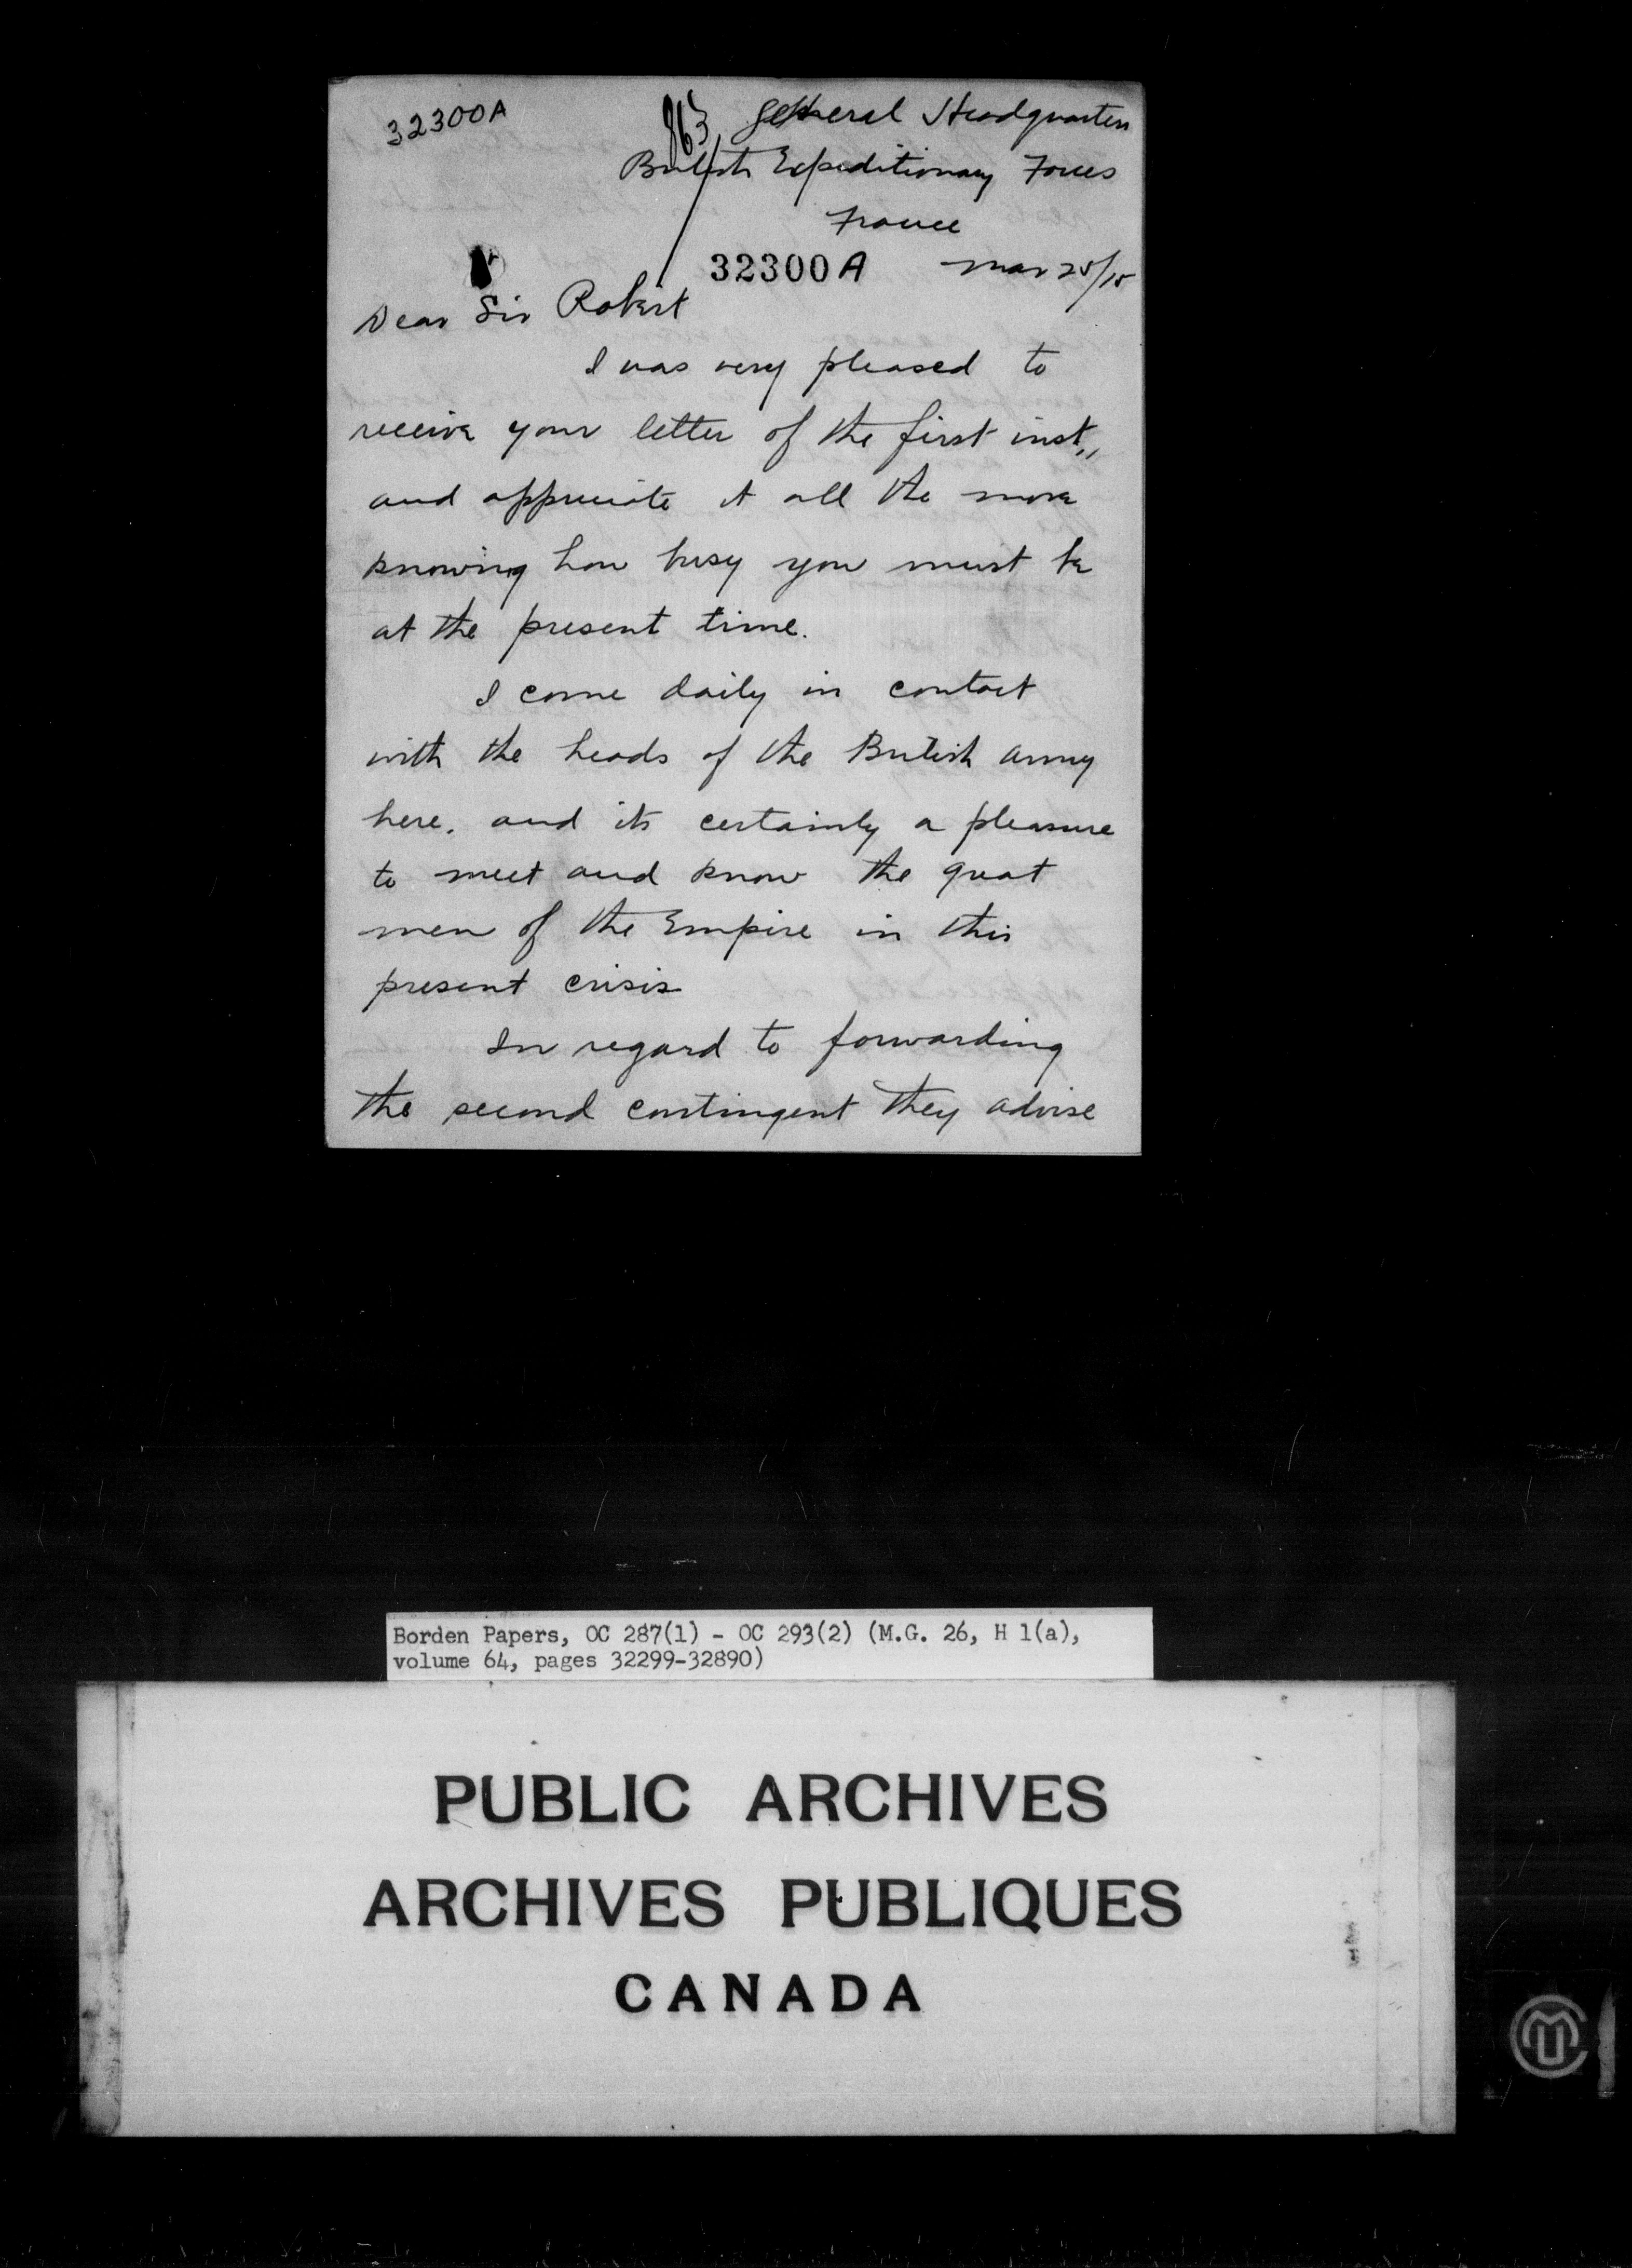 32300A
863
General Headquarters
British Expeditionary Forces
France
32300A Mar 25/15
Dear Sir Robert
I was very pleased to
receive your letter of the first inst.,
and appreciate it all the more
knowing how busy you must be
at the present time.
I come daily in contact
with the heads of the British army
here. and its certainly a pleasure
to meet and know the great
men of the Empire in this
present crisis
In regard to forwarding
the second contingent they advise
Borden Papers, OC 287(1) - OC 293(2) (M.G. 26, H 1(a),
volume 64, pages 32299-32890)
PUBLIC ARCHIVES
ARCHIVES PUBLIQUES
CANADA